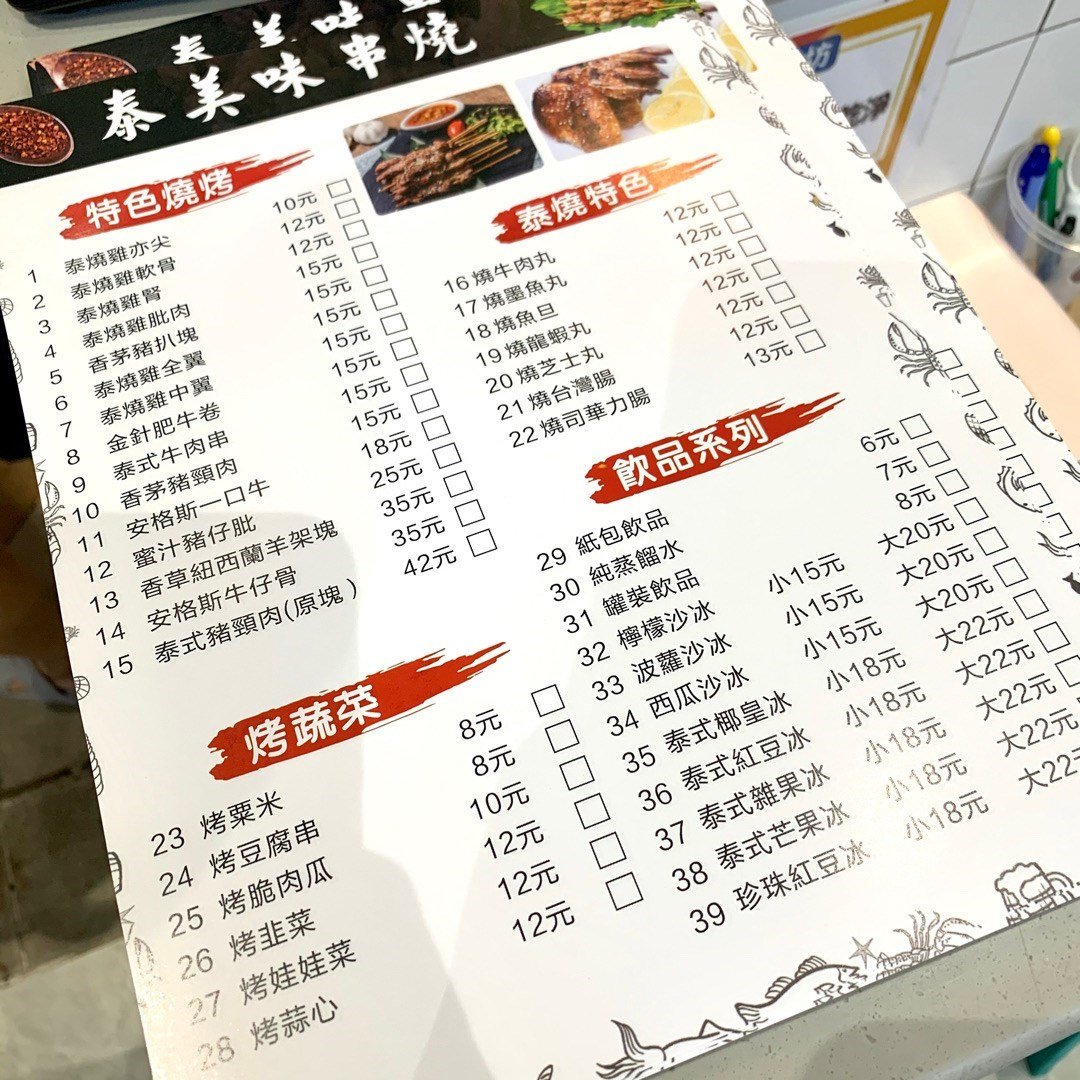 泰美味
泰美味串燒
特色燒烤
1 泰燒雞亦尖 10元
2 泰燒雞軟骨 12元
3 泰燒雞腎 12元
4 泰燒雞肶肉 15元
5 香茅豬扒塊 15元
6 泰燒雞全翼 15元
7 泰燒雞中翼 15元
8 金針肥牛卷 15元
9 泰式牛肉串 15元
10 香茅豬頸肉 15元
11 安格斯一口牛 18元
12 蜜汁豬仔肶 25元
13 香草紐西蘭羊架塊 35元
14 安格斯牛仔骨 35元
15 泰式豬頸肉(原塊) 42元
泰燒特色
16 燒牛肉丸 12元
17 燒墨魚丸 12元
18 燒魚旦 12元
19 燒龍蝦丸 12元
20 燒芝士丸 12元
21 燒台灣腸 12元
22 燒司華力腸 13元
烤蔬菜
23 烤粟米 8元
24 烤豆腐串 8元
25 烤脆肉瓜 10元
26 烤韭菜 12元
27 烤娃娃菜 12元
28 烤蒜心 12元
飲品系列
29 紙包飲品 6元
30 純蒸餾水 7元
31 罐裝飲品 8元
32 檸檬沙冰 小15元 大20元
33 波蘿沙冰 小15元 大20元
34 西瓜沙冰 小15元 大20元
35 泰式椰皇冰 小18元 大22元
36 泰式紅豆冰 小18元 大22元
37 泰式雜果冰 小18元 大22元
38 泰式芒果冰 小18元 大22元
39 珍珠紅豆冰 小18元 大22元
坊